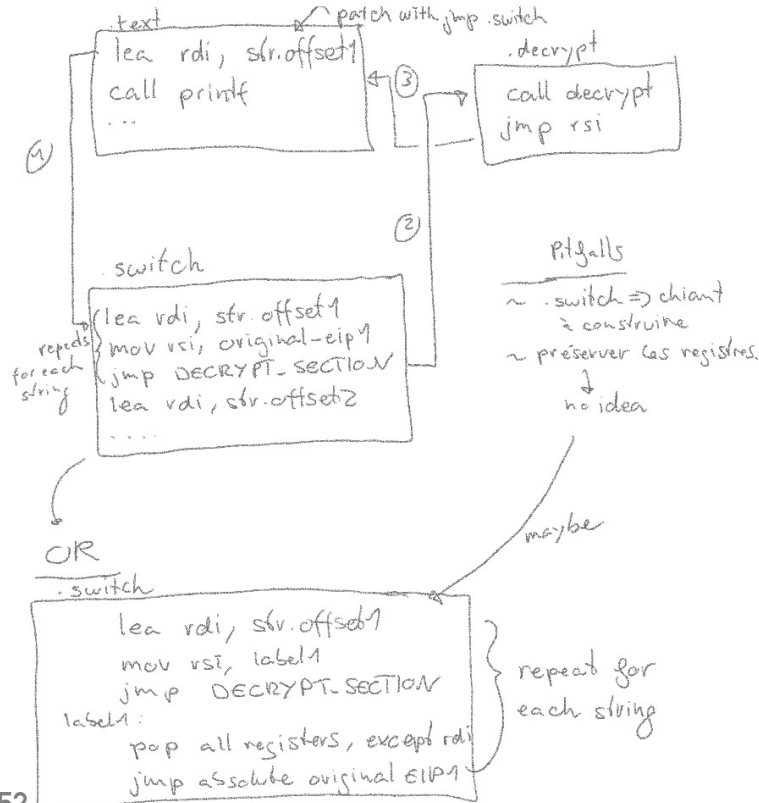 .text
patch with jmp .switch
lea rdi, str.offset1
call printf
...
.decrypt
call decrypt
jmp rsi
①
②
③
.switch
lea rdi, str.offset1
mov rsi, original-eip1
jmp DECRYPT_SECTION
lea rdi, str.offset2
....
repeats
for each
string
Pitfalls
~ .switch => chiant
à construire
~ préserver les registres.
no idea
maybe
OR
.switch
lea rdi, str.offset1
mov rsi, label1
jmp DECRYPT_SECTION
label1:
pop all registers, except rdi
jmp absolute original EIP1
repeat for
each string
52